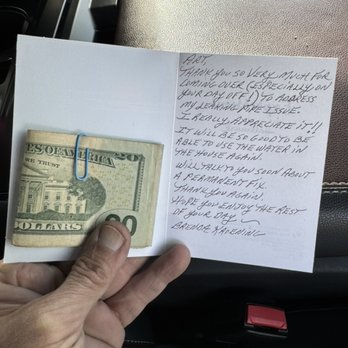 ART,
THANK YOU SO VERY MUCH FOR
COMING OVER (ESPECIALLY ON
YOUR DAY OFF!) TO ADDRESS
MY LEAKING PIPE ISSUE.
I REALLY APPRECIATE IT!!
IT WILL BE SO GOOD TO BE
ABLE TO USE THE WATER IN
THE HOUSE AGAIN.
WILL TALK TO YOU SOON ABOUT
A PERMANENT FIX.
THANK YOU AGAIN.
HOPE YOU ENJOY THE REST
OF YOUR DAY
BRENDA
ES OF AMERICA
20
WE TRUST
DOLLARS
20